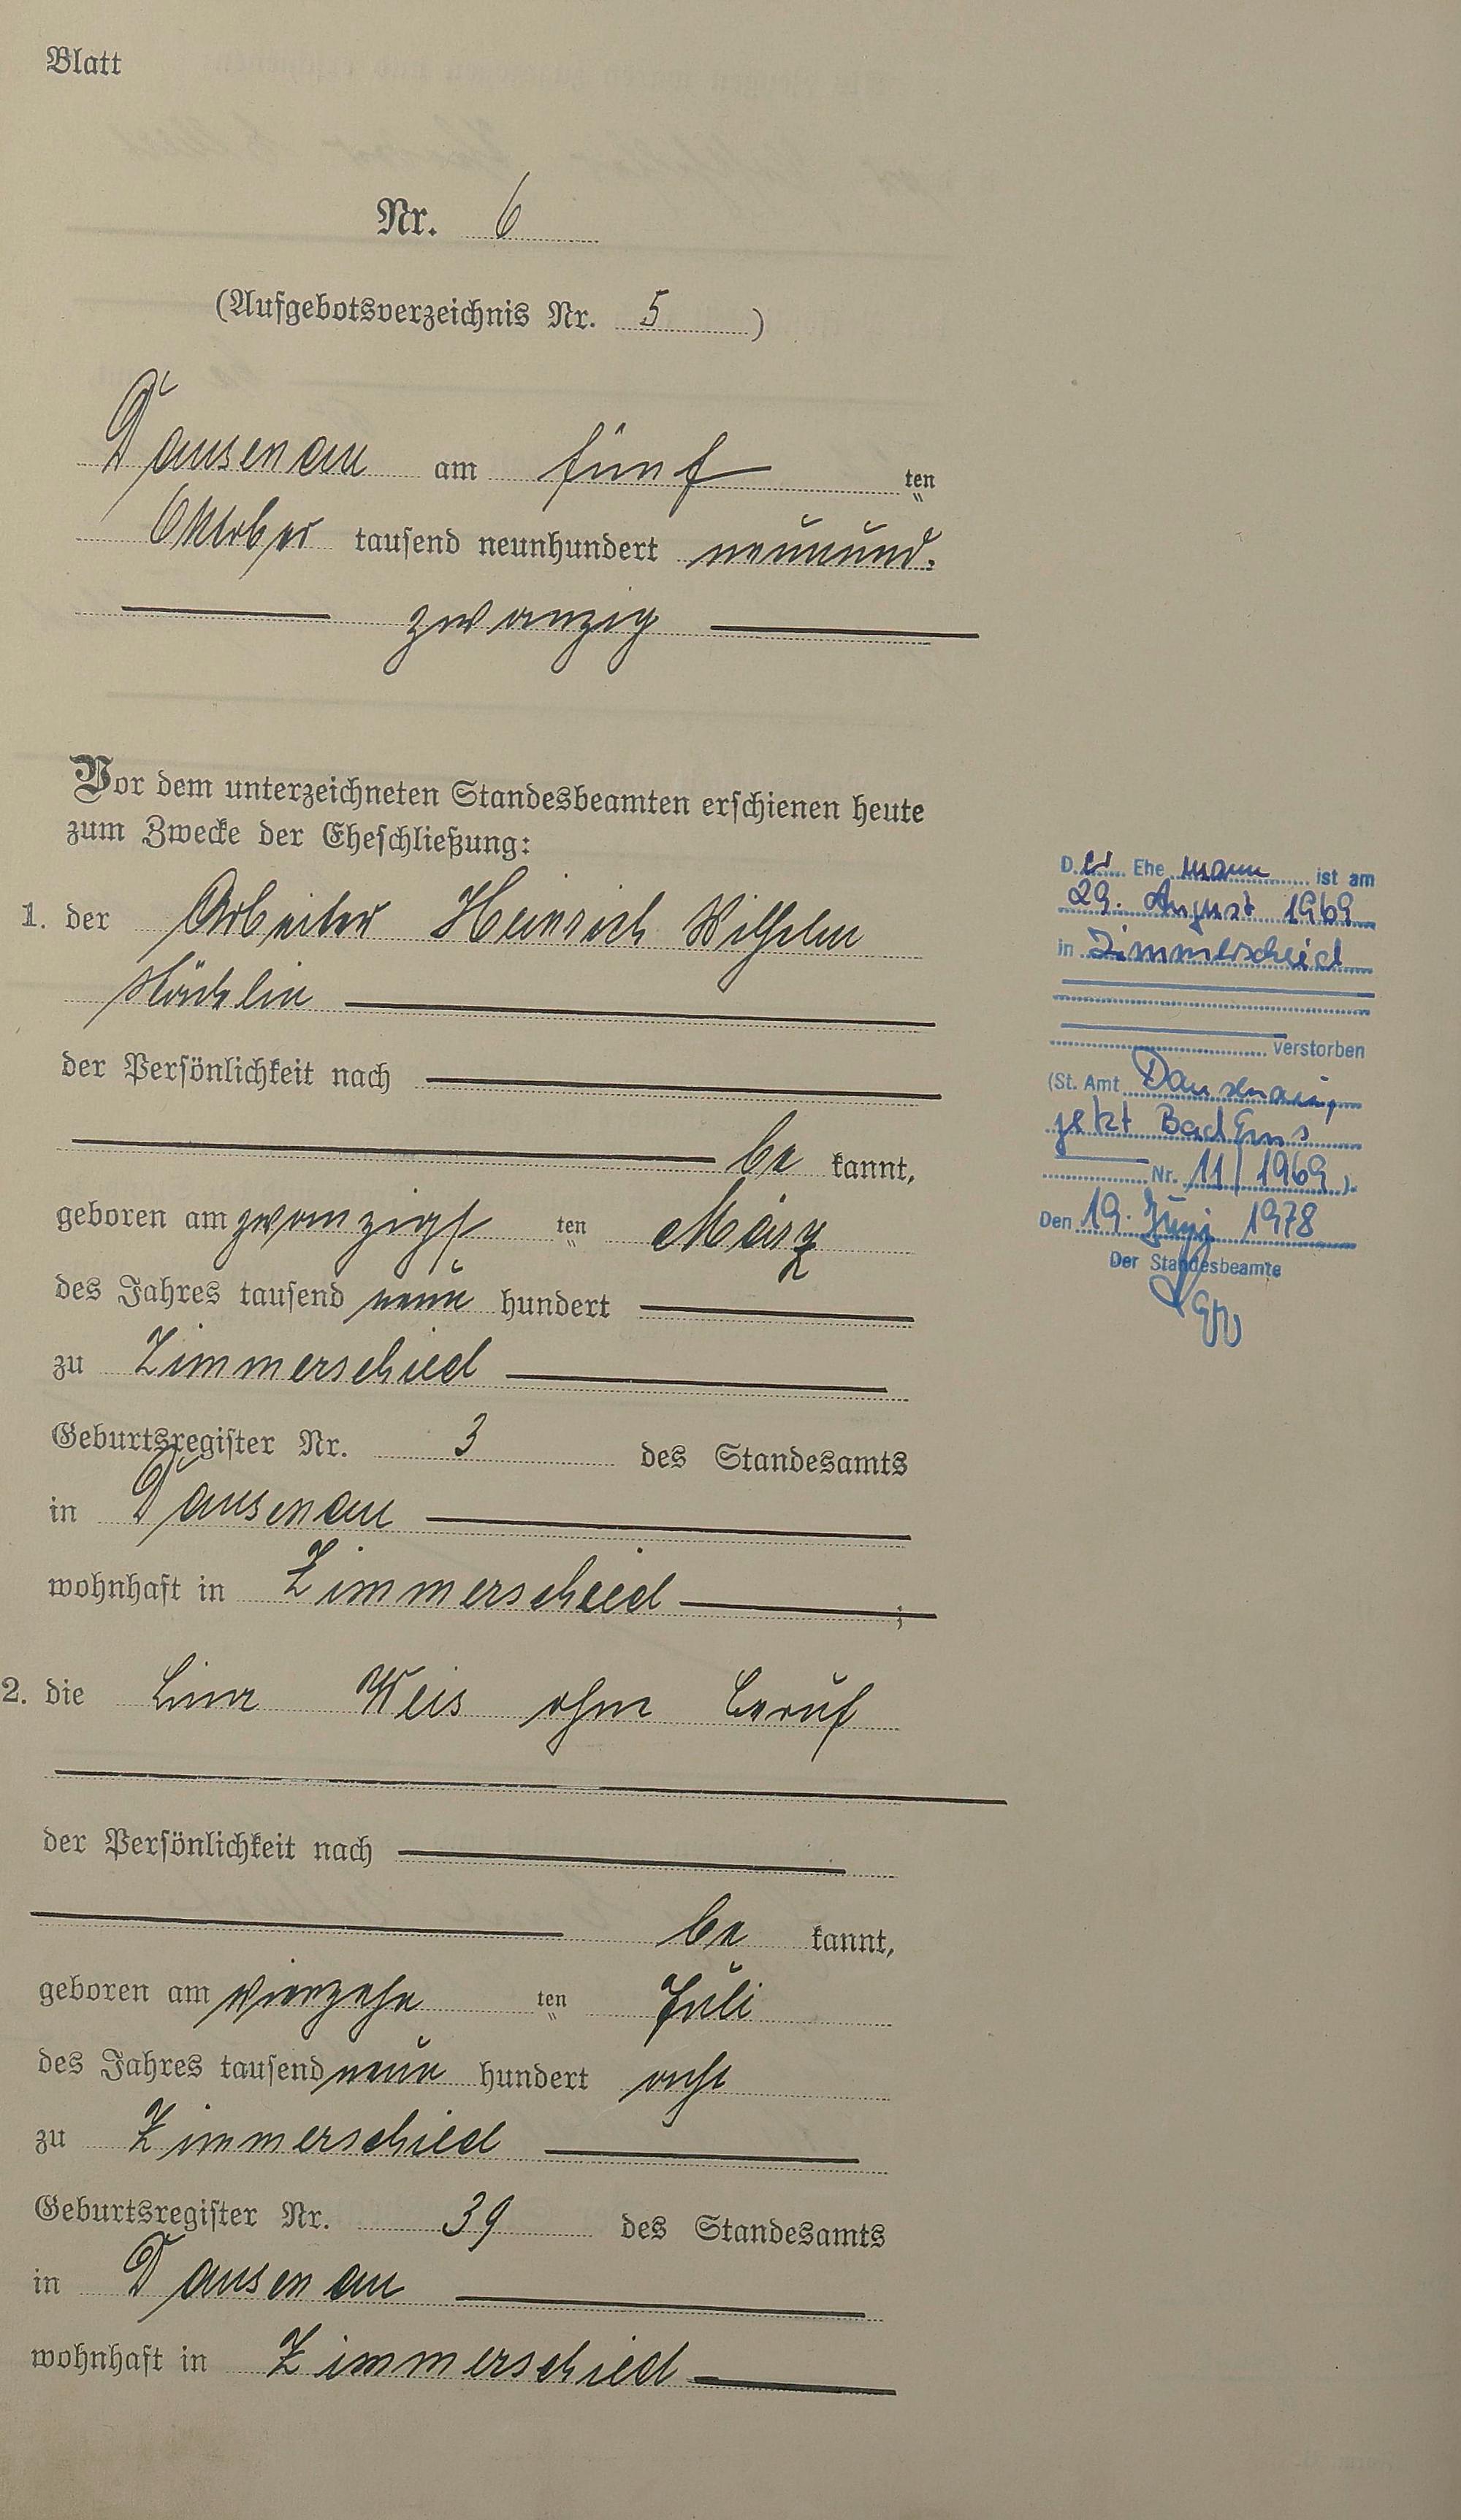 Blatt
Nr. 6
(Aufgebotsverzeichnis Nr. 5 )
Dausenau am fünf ten
Oktober tausend neunhundert neunund-
zwanzig
Vor dem unterzeichneten Standesbeamten erschienen heute
zum Zwecke der Eheschließung:
1. der Arbeiter Heinrich Wilhelm
der Persönlichkeit nach
be kannt,
geboren am zwanzigst ten März
des Jahres tausend neun hundert
zu Zimmerschied
Geburtsregister Nr. 3 des Standesamts
in Dausenau
wohnhaft in Zimmerschied ;
2. die Lina Weis ohne Beruf
der Persönlichkeit nach
be kannt,
geboren am vierzehn ten Juli
des Jahres tausend neun hundert acht
zu Zimmerschied
Geburtsregister Nr. 39 des Standesamts
in Dausenau
wohnhaft in Zimmerschied
D er Ehe mann ist am
29. August 1969
in Zimmerscheid
verstorben
(St. Amt Dausenau,
jetzt Bad Ems
Nr. 11/1969 ).
Den 19. Juni 1978
Der Standesbeamte